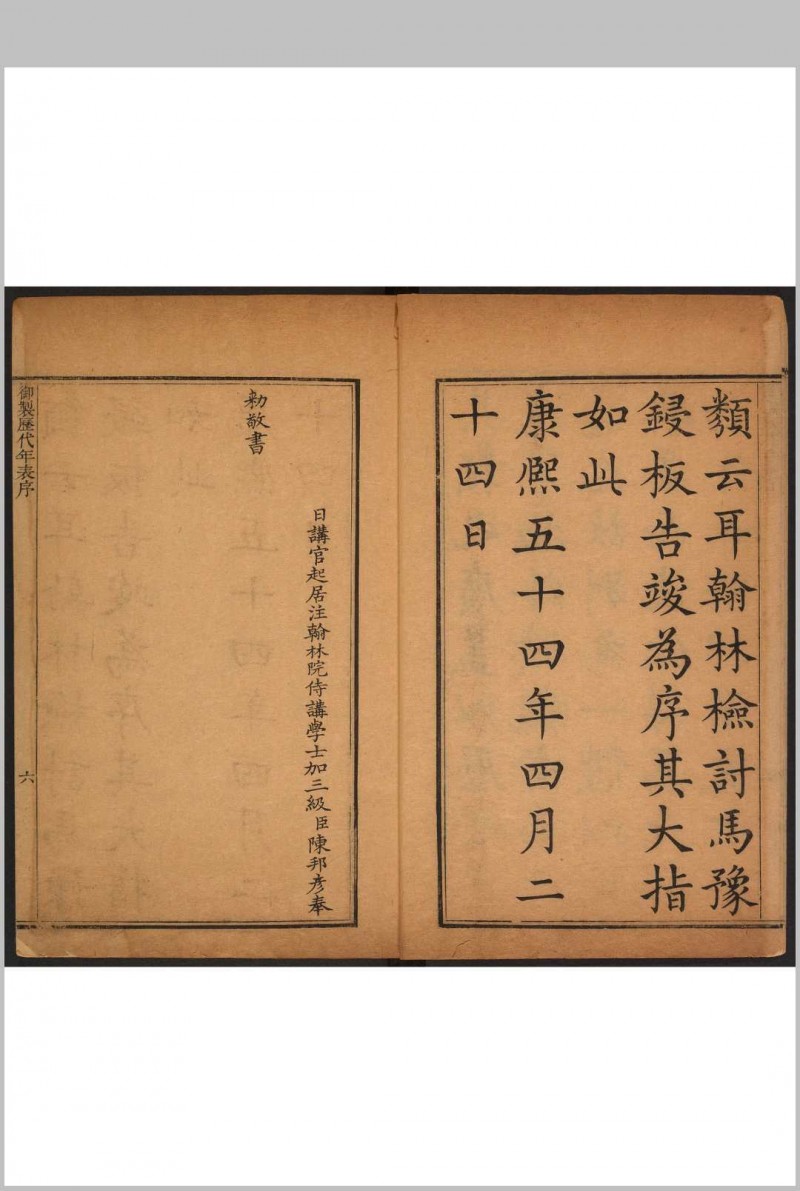 類云耳翰林檢討馬豫
鋟板告竣為序其大指
如此
康熙五十四年四月二
十四日
日講官起居注翰林院侍講學士加三級臣陳邦彦奉
勑敬書
御製歷代年表序
六